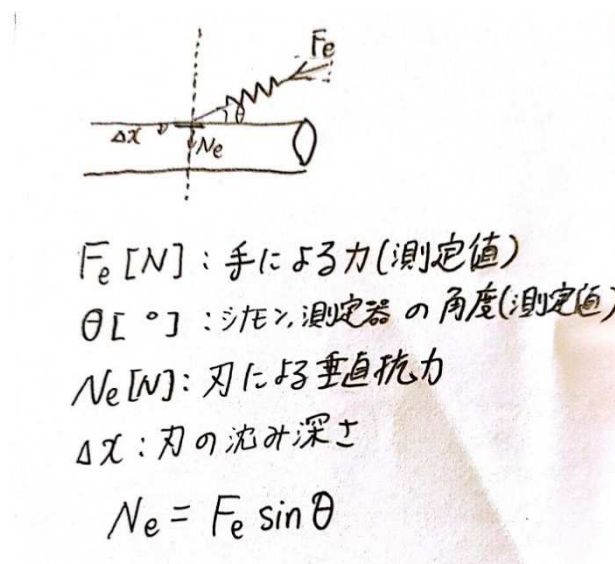 Fe
θ
Δx
Ne
Fe [N] : 手による力(測定値)
θ[ °] : シナモン,測定器の角度(測定値)
Ne[N] : 刃による垂直抗力
Δx : 刃の沈み深さ
Ne = Fe sinθ